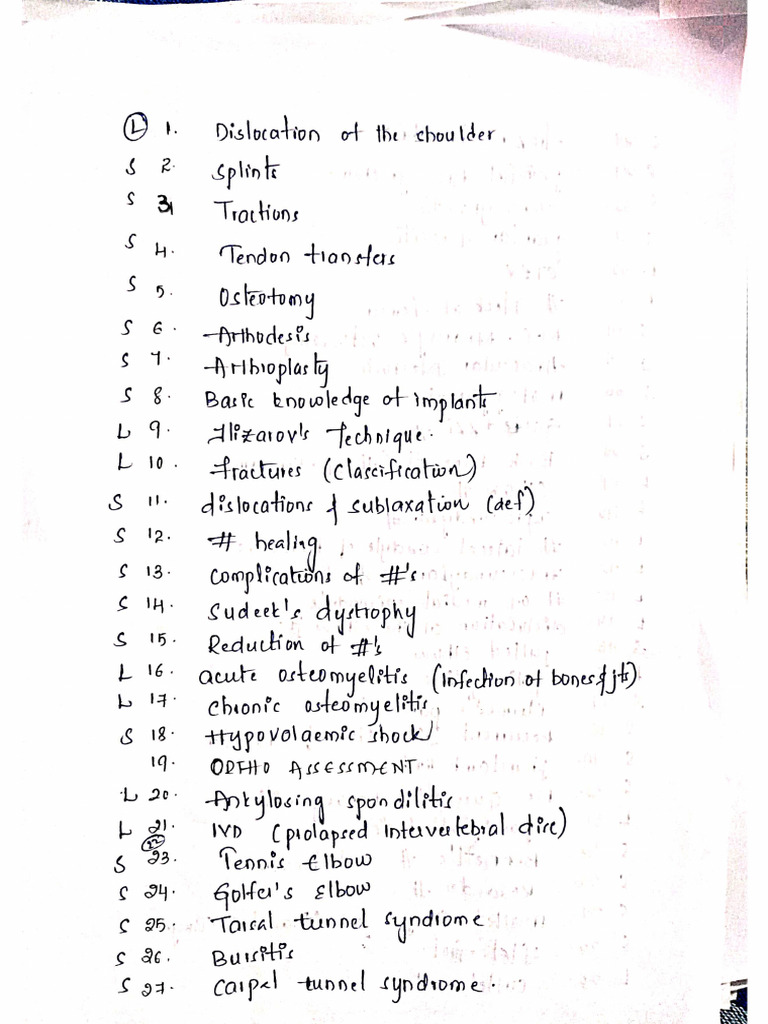 Ⓛ 1. Dislocation of the shoulder.
S 2. Splints
S 3. Tractions
S 4. Tendon transfers
S 5. Osteotomy
S 6. Arthodesis
S 7. Arthroplasty
S 8. Basic knowledge of implants
L 9. Ilizarov's Technique.
L 10. fractures (classification)
S 11. dislocations & sublaxation (def)
S 12. # healing.
S 13. complications of #'s.
S 14. Sudeek's dystrophy
S 15. Reduction of #'s
L 16. acute osteomyelitis (infection of bones & jts)
L 17. chronic osteomyelitis,
S 18. Hypovolaemic shock
19. ORTHO ASSESSMENT
L 20. Ankylosing spondilitis
L 21. IVD (prolapsed intervertebral disc)
(22)
S 23. Tennis Elbow
S 24. Golfer's Elbow
S 25. Tarsal tunnel syndrome
S 26. Bursitis
S 27. carpel tunnel syndrome.